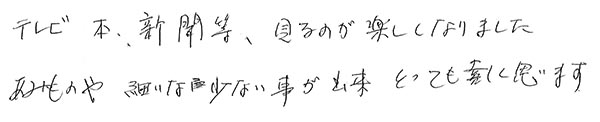 テレビ 本、新聞等、見るのが楽しくなりました
あみものや 細いな 少ない事が出来 とっても喜に思います